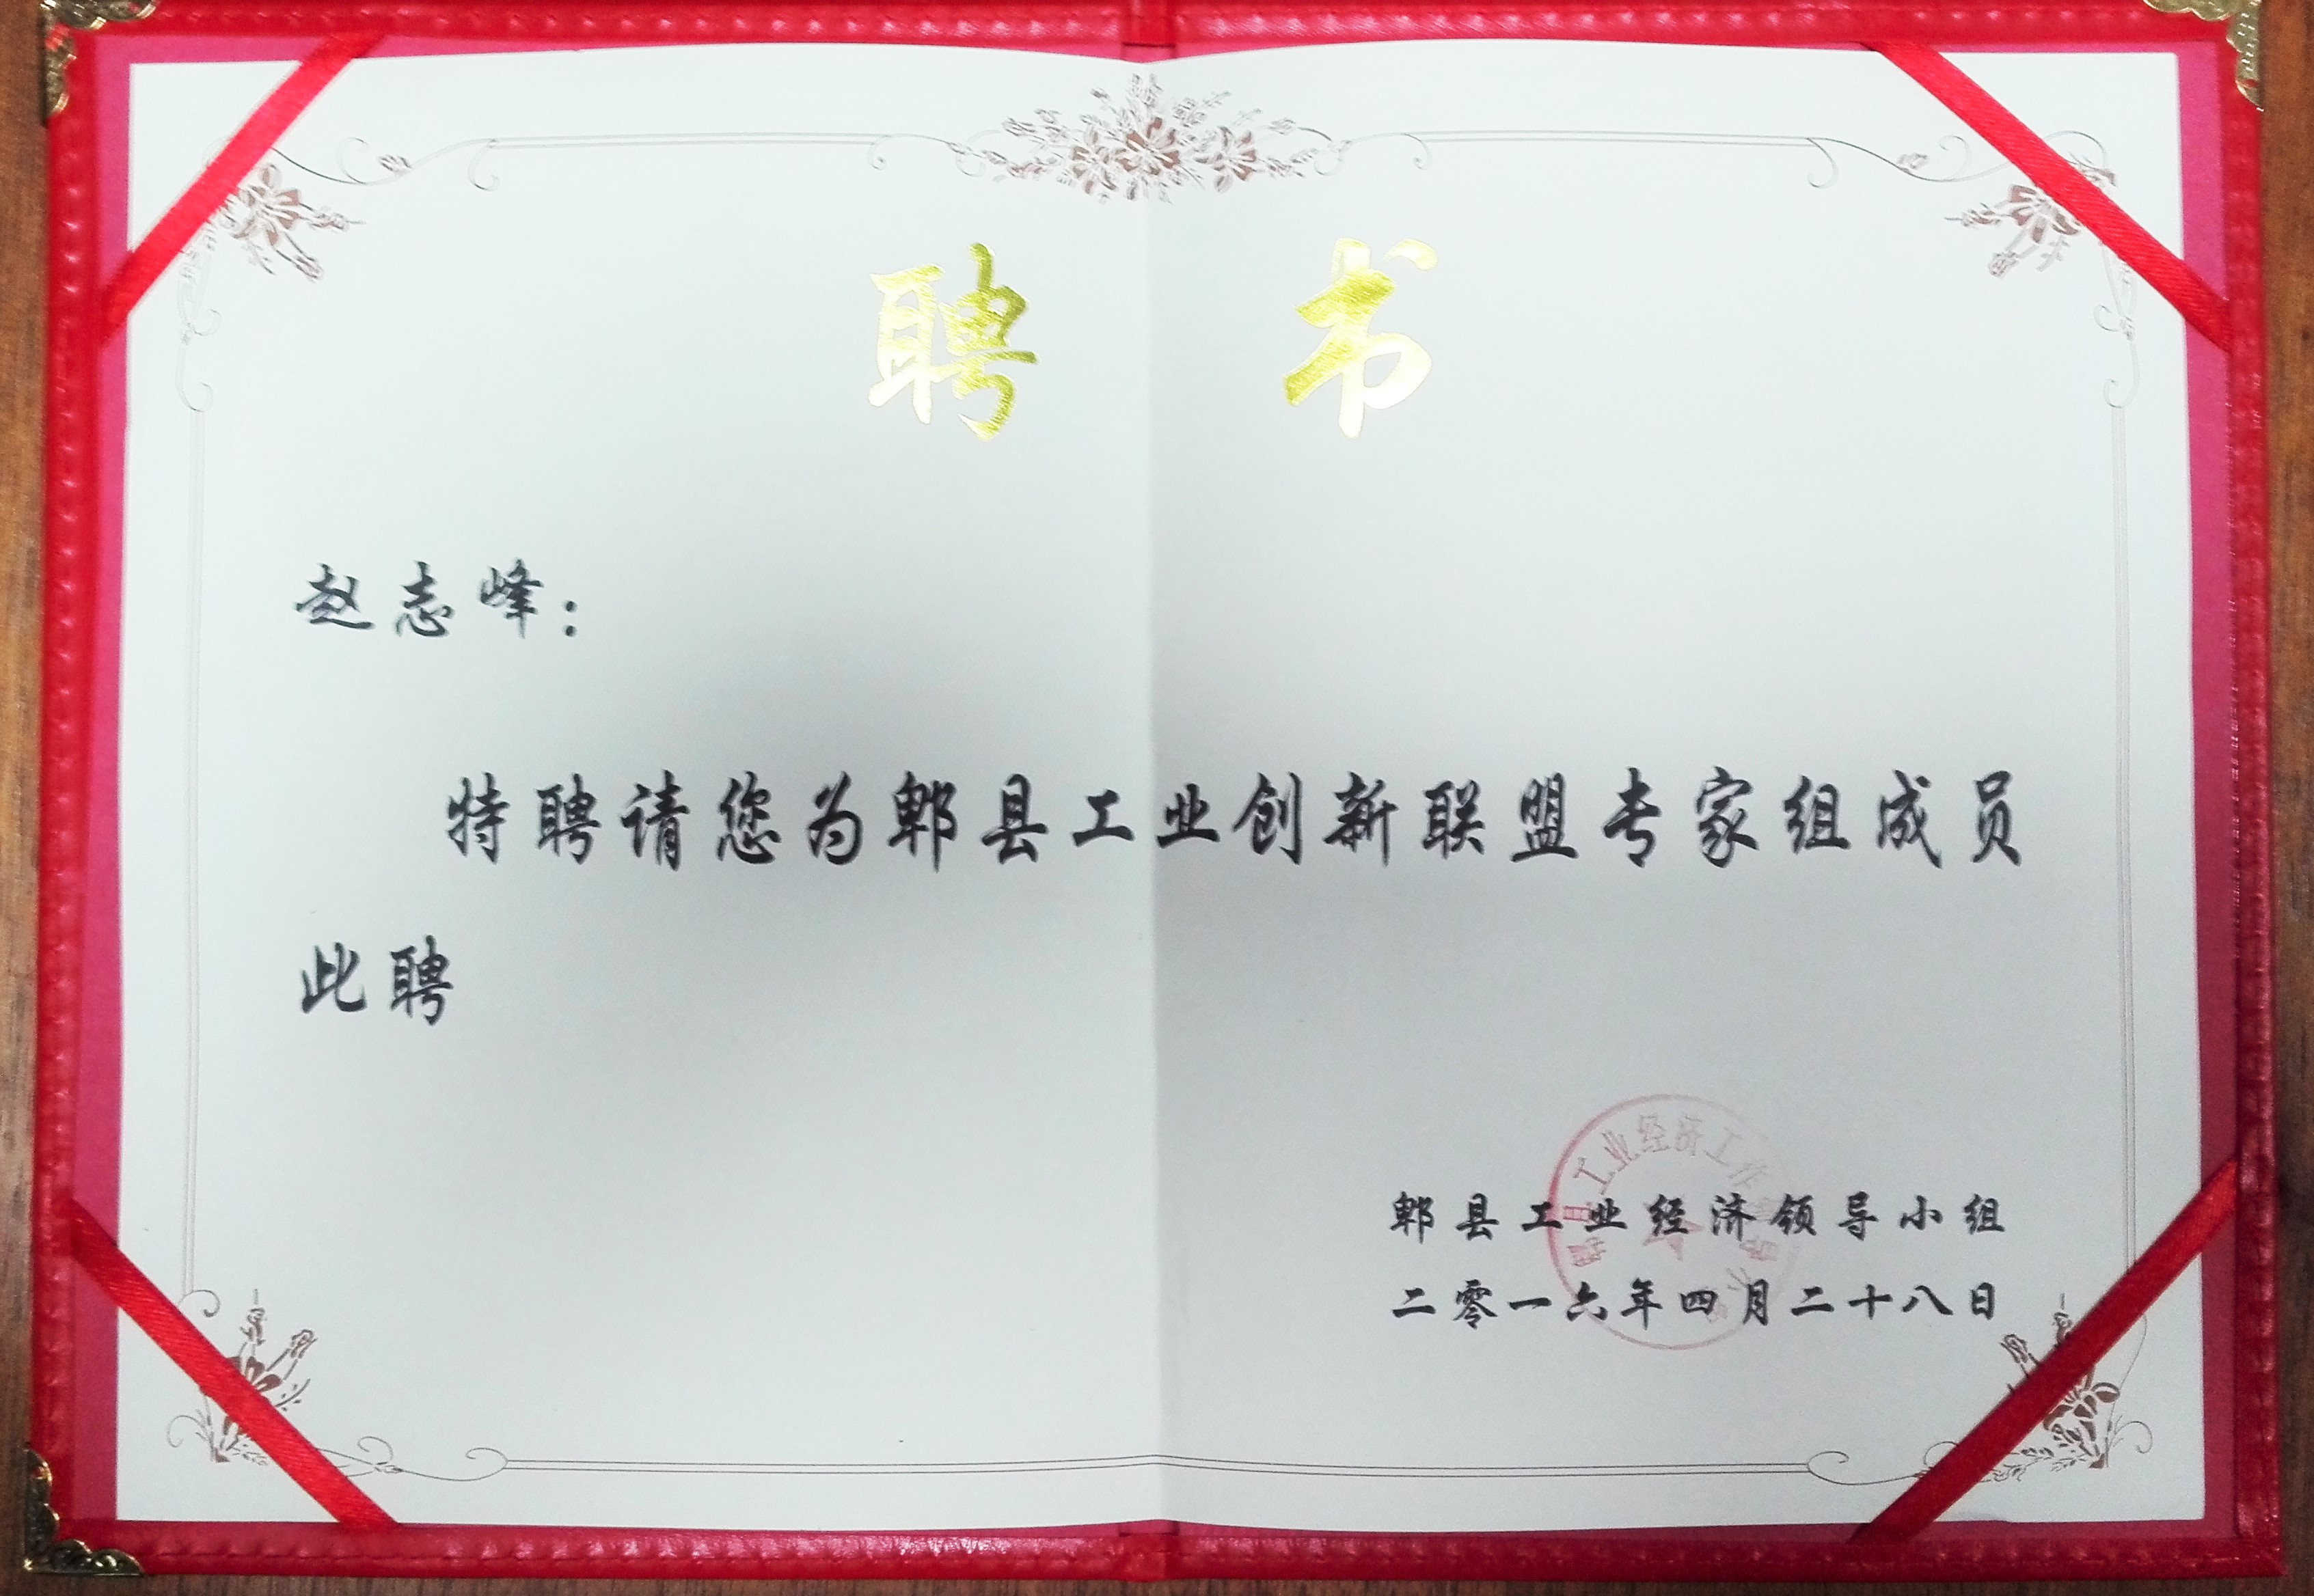 聘书
赵志峰：
特聘请您为郫县工业创新联盟专家组成员
此聘
郫县工业经济领导小组
二零一六年四月二十八日